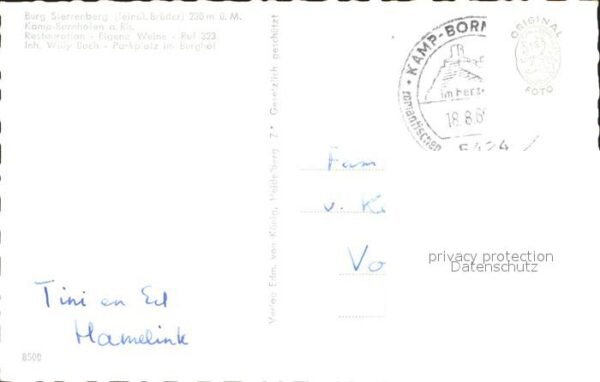 Burg Sterrenberg (feindl. Brüder) 230 m ü. M.
Kamp-Bornhofen a. Rh.
Restauration - Eigene Weine - Ruf 323
Inh. Willy Buch - Parkplatz im Burghof
Verlag Edm. von König, Heidelberg Z * Gesetzlich geschützt
KAMP-BORN
im Herz
18.8.6
romantischen
5424
ORIGINAL
FOTO
Fam
v. K
Vo
privacy protection
Datenschutz
Tini en Ed
Hamelink
8500